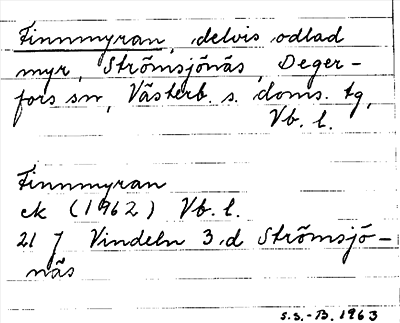 Finnmyran, delvis odlad
myr, Strömsjönäs, Deger-
fors sn, Västerb. s. doms. tg,
Vb. l.
Finnmyran
ek (1962) Vb. l.
21 J Vindeln 3.d Strömsjö-
näs
S.S.-B. 1963